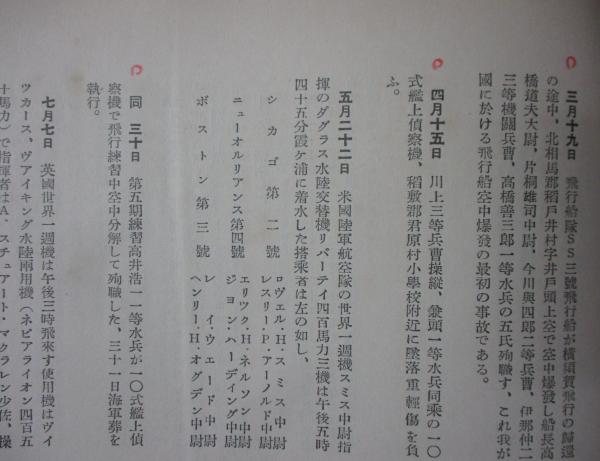 三月十九日　飛行船隊SS三號飛行船が横須賀飛行の歸還
の途中、北相馬郡稻戸井村字井戸頭上空で空中爆發し船長高
橋道夫大尉、片桐雄司中尉、今川與四郎二等兵曹、伊那仲二
三等機關兵曹、高橋善三郎一等水兵の五氏殉職す、これ我が
國に於ける飛行船空中爆發の最初の事故である。
四月十五日　川上三等兵曹操縦、兼頭一等水兵同乘の一〇
式艦上偵察機、稻敷郡君原村小學校附近に墜落重輕傷を負
ふ。
五月二十二日　米國陸軍航空隊の世界一週機スミス中尉指
揮のダグラス水陸交替機リバーテイ四百馬力三機は午後五時
四十五分霞ヶ浦に着水した搭乘者は左の如し、
シカゴ第二號　ロヴェル・H・スミス中尉
レスリー・P・アーノルド中尉
ニューオルリアンス第四號　エリツク・H・ネルソン中尉
ジョン・ハーディング中尉
ボストン第三號　レイ・ウエード中尉
ヘンリー・H・オグデン中尉
同　三十日　第五期練習高井浩一一等水兵が一〇式艦上偵
察機で飛行練習中空中分解して殉職した、三十一日海軍葬を
執行。
七月七日　英國世界一週機は午後三時飛來す使用機はヴイ
ツカース、ヴアイキング水陸兩用機（ネピアライオン四百五
十馬力）で指揮者はA・スチュアート・マクラレン少佐、操